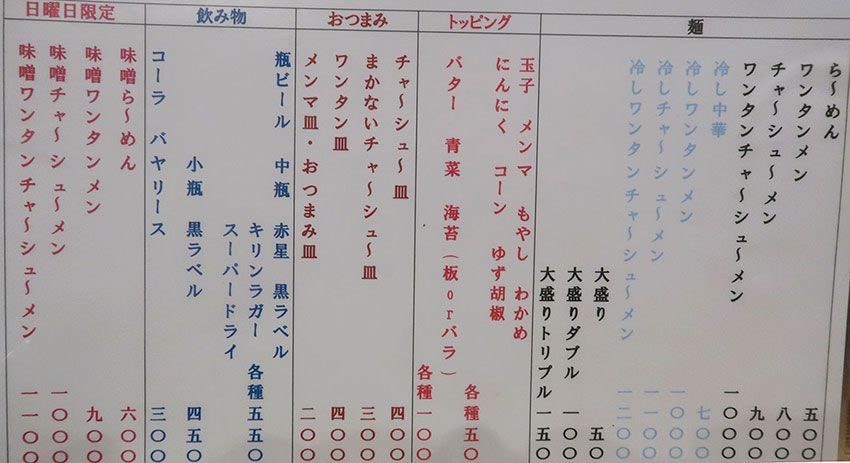 麺
ら〜めん 五〇〇
ワンタンメン 八〇〇
チャ〜シュ〜メン 九〇〇
ワンタンチャ〜シュ〜メン 一〇〇〇
冷し中華 七〇〇
冷しワンタンメン 一〇〇〇
冷しチャ〜シュ〜メン 一一〇〇
冷しワンタンチャ〜シュ〜メン 一二〇〇
大盛り 五〇
大盛りダブル 一〇〇
大盛りトリプル 一五〇
トッピング
玉子 メンマ もやし わかめ
にんにく コーン ゆず胡椒
各種五〇
バター 青菜 海苔(板orバラ)
各種一〇〇
おつまみ
チャ〜シュ〜皿 四〇〇
まかないチャ〜シュ〜皿 三〇〇
ワンタン皿 四〇〇
メンマ皿・おつまみ皿 二〇〇
飲み物
瓶ビール 中瓶 赤星 黒ラベル
キリンラガー 各種五五〇
スーパードライ
小瓶 黒ラベル 四五〇
コーラ バヤリース 三〇〇
日曜日限定
味噌ら〜めん 六〇〇
味噌ワンタンメン 九〇〇
味噌チャ〜シュ〜メン 一〇〇〇
味噌ワンタンチャ〜シュ〜メン 一一〇〇